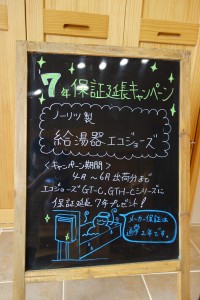 7年保証延長キャンペーン
ノーリツ製
給湯器エコジョーズ
<キャンペーン期間>
4月〜6月出荷分まで
エコジョーズGT-C、GTH-Cシリーズに
保証延長7年プレゼント!
メーカー保証は
通常2年です。